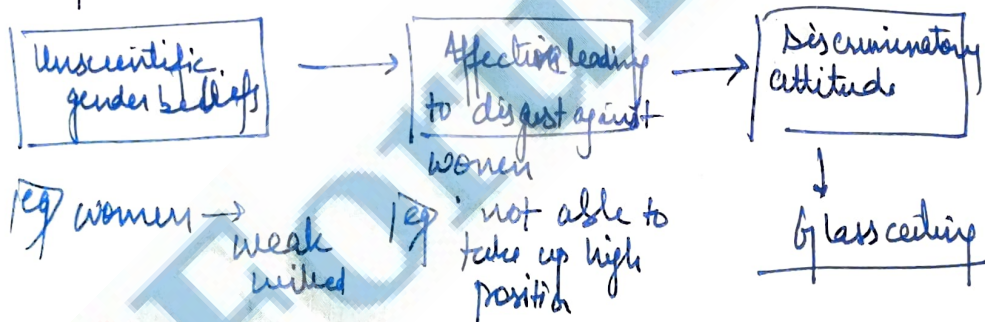 Unscientific
gender beliefs
Affection leading
to disgust against
women
Discriminatory
attitude
eg women → weak
willed
eg not able to
take up high
position
Glass ceiling
FORUM